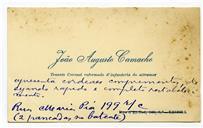 João Augusto Camacho
Tenente Coronel reformado d'infantaria do ultramar
apresenta cordeaes cumprimentos, de-
sejando rapido e completo restabeleci-
mento.
Rua Maria Pia 199 r/c
(2 pancadas no batente)